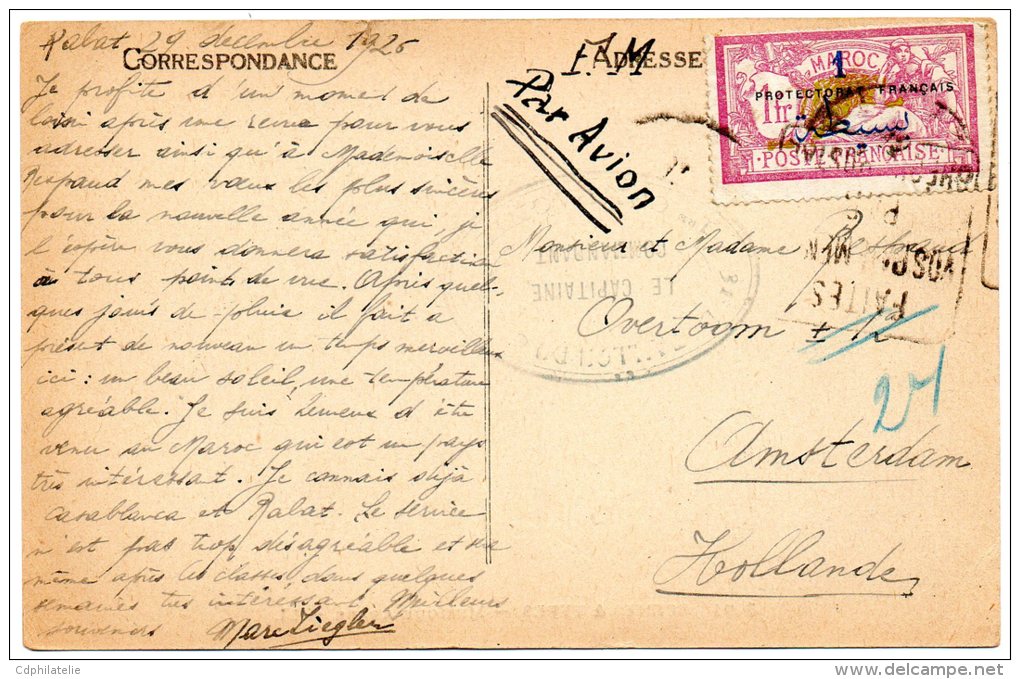 Rabat 29 décembre 1926
CORRESPONDANCE
Je profite d'un moment de
loisir après une revue pour vous
adresser ainsi qu'à Mademoiselle
mes vœux les plus sincères
pour la nouvelle année qui, je
l'espère vous donnera satisfaction
à tous point de vue. Après quel-
ques jours de pluie il fait à
présent de nouveau un temps merveilleux
ici : un beau soleil, une température
agréable. Je suis heureux d'être
venu au Maroc qui est un pays
très intéressant. Je connais déjà
Casablanca et Rabat. Le service
n'est pas trop désagréable et
même après les classes dans quelques
semaines très intéressant. Meilleurs
souvenirs Marc Ziegler
F. M
ADRESSE
Par Avion
MAROC
1
PROTECTORAT FRANÇAIS
1fr
POSTE FRANÇAISE
Monsieur et Madame
Overtoom
27
Amsterdam
Hollande
LE CAPITAINE
COMMANDANT
FAITES
VOS
Cdphilatelie
www.delcampe.net